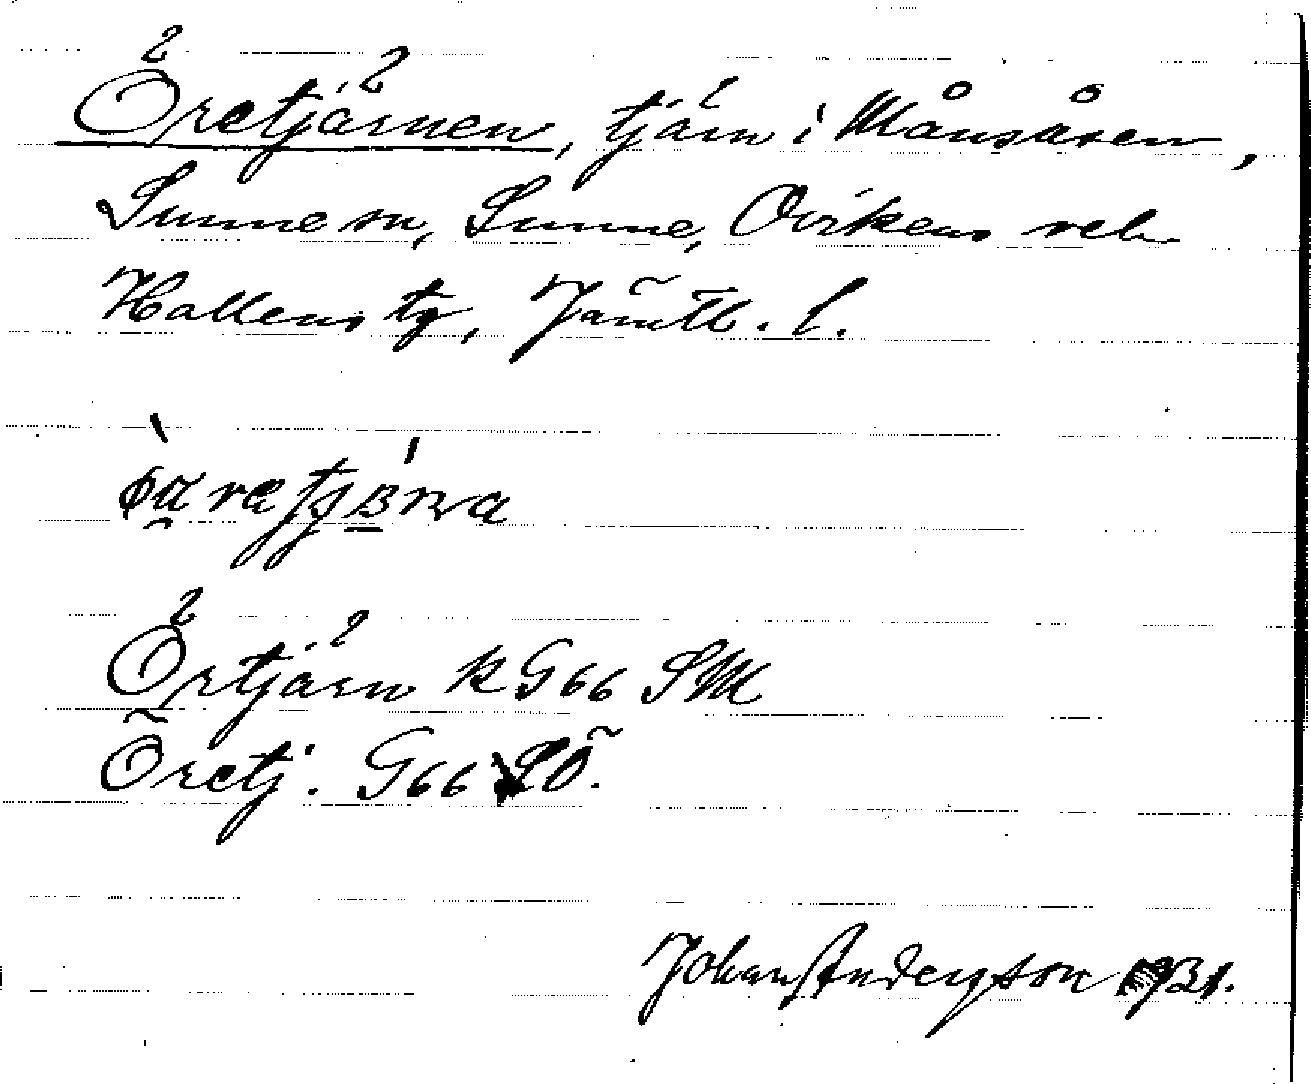 Öretjärnen, tjärn i Månsåsen,
Sunne sn, Sunne, Ovikens och
Hallens tg, Jämtl. l.
Örtjärn k G66 SM
Öretj. G66 SÖ.
Johan Anderson 1931.